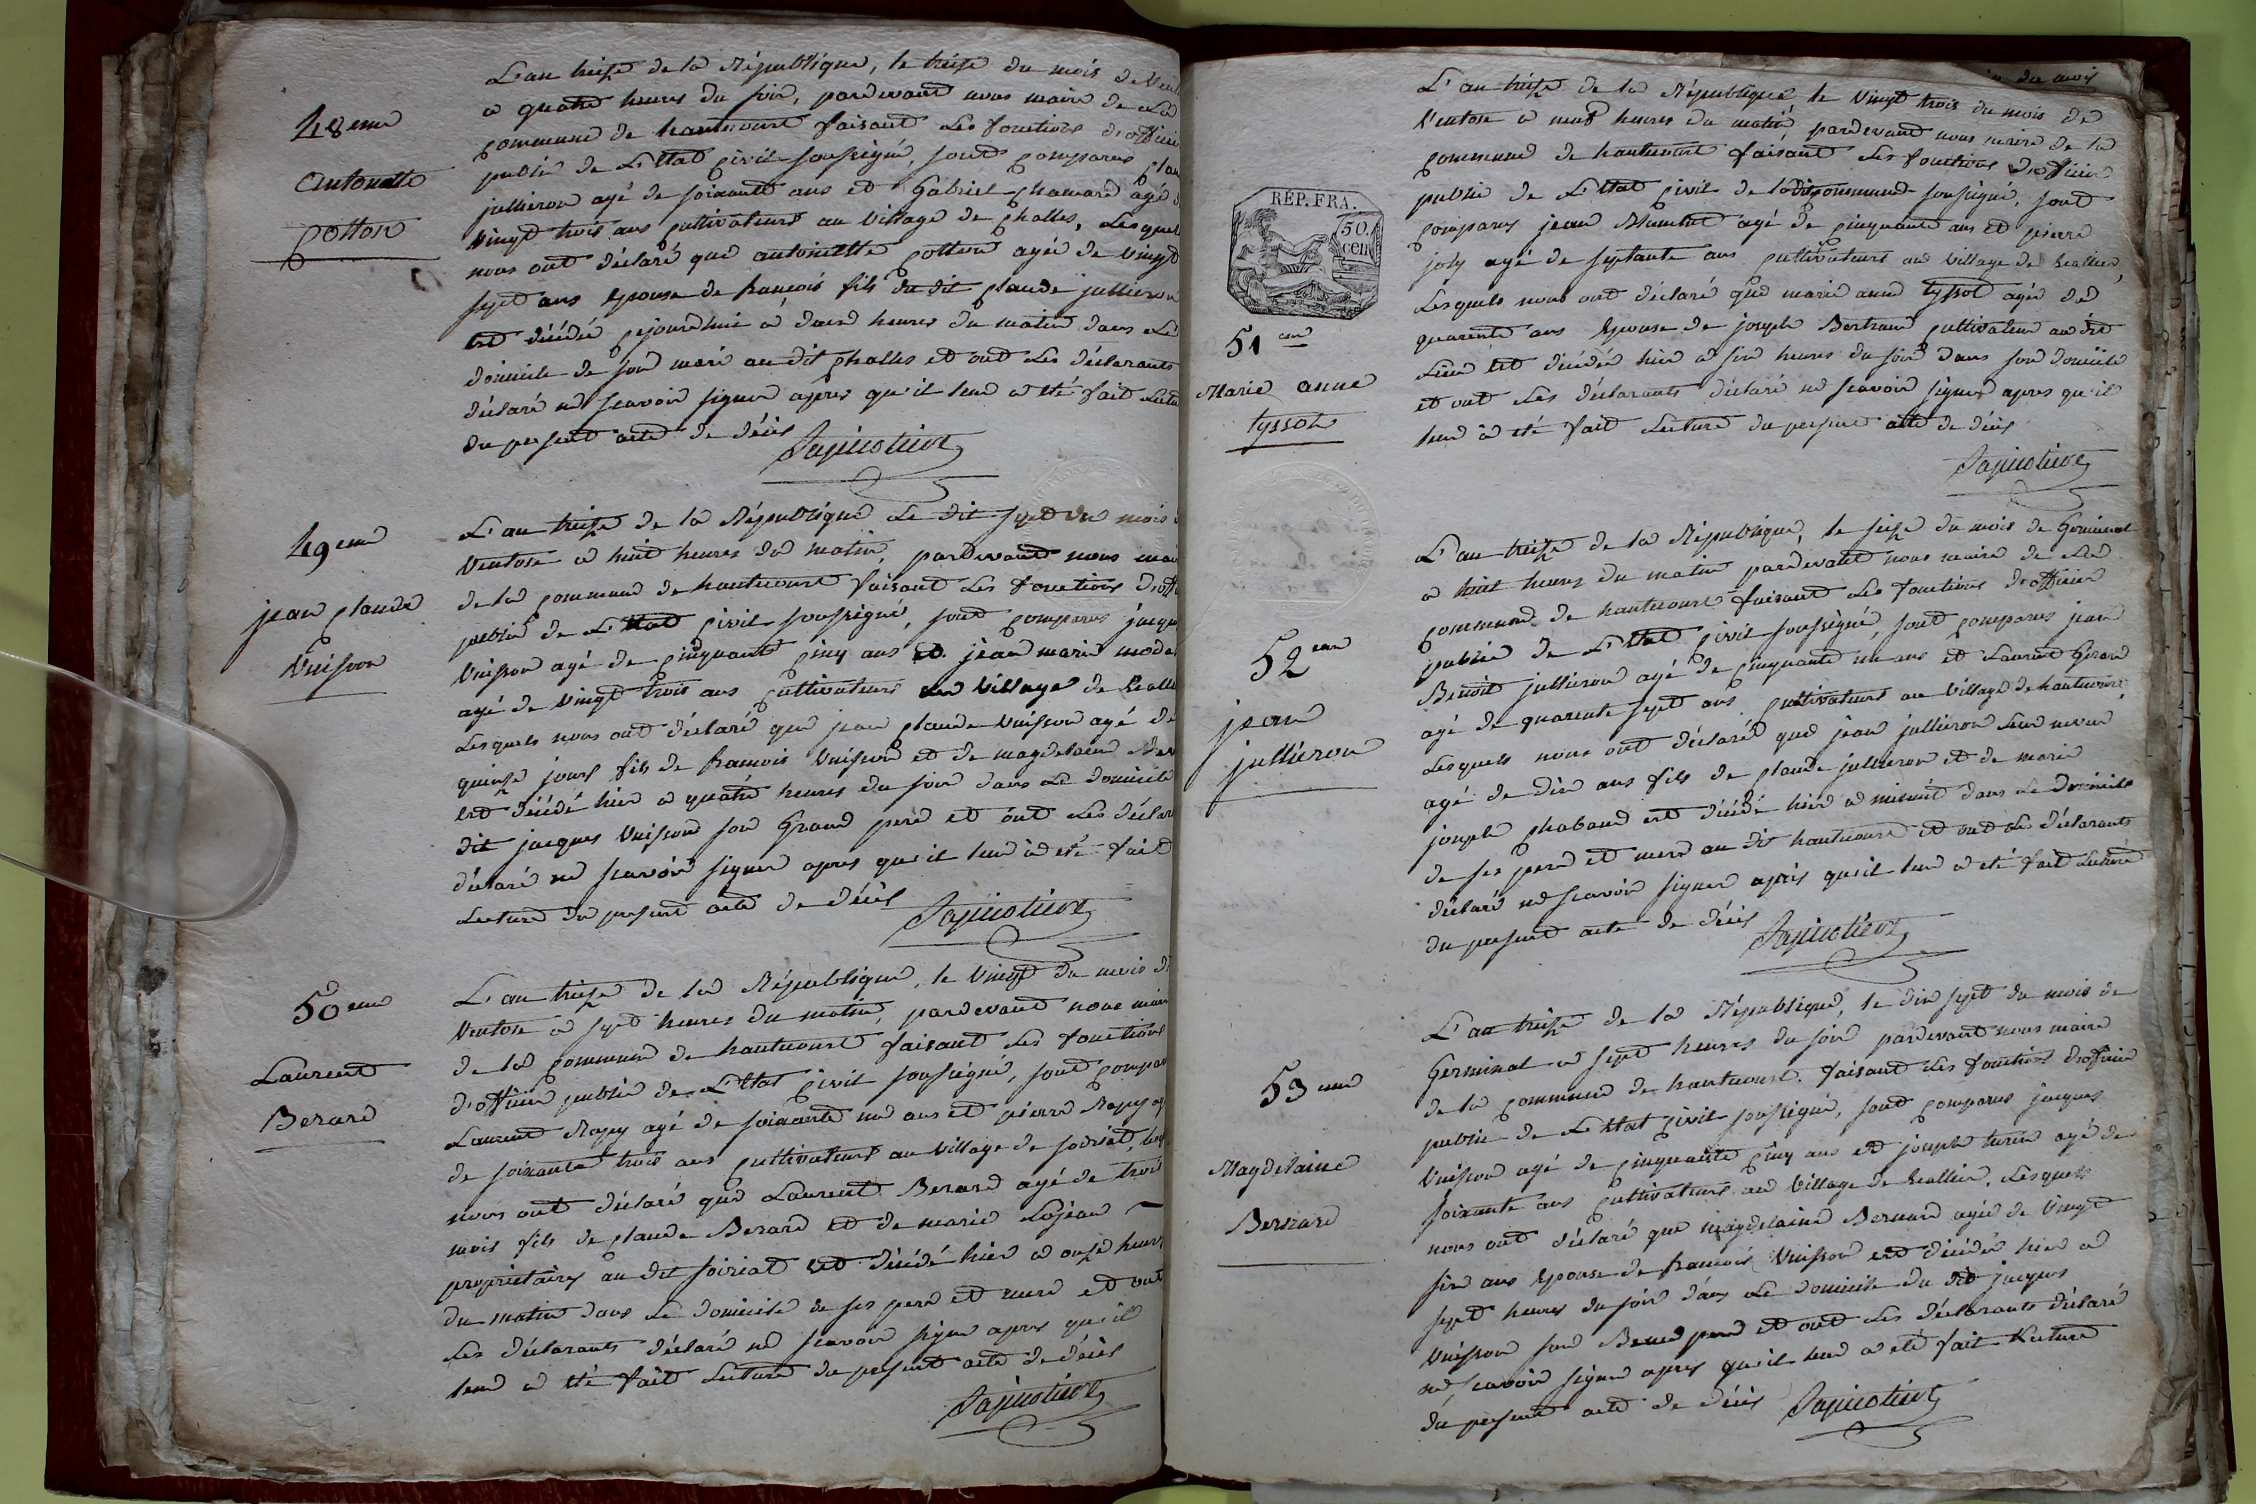 48eme
antoinette
Cotton
L'an treize de la République, le treize du mois de Vent
a quatre heures du soir, pardevant nous maire de La
Commune de hautecourt faisant Les fonctions d'officier
public de L'Etat Civil soussigné, sont Comparus Clau
jullieron agé de soixante ans et Gabriel Chanard agé d
Vingt trois ans Cultivateurs au Village de Challes, Lesquels
nous ont déclaré que antoinette Cotton agée de Vingt
sept ans Epouse de francois fils du dit Claude jullieron
est décédée Cejourdhui a douze heures du matin dans Le
domicile de son mari au dit Challes et ont Les déclarants
déclaré ne scavoir signer apres qu'il leur a eté fait Lectu
du present acte de décès
49eme
jean Claude
Vuisson
L'an treize de la République Le dit sept du mois
Ventose a huit heures du matin, pardevant nous mai
de la Commune de hautecourt faisant Les fonctions d'offi
public de L'Etat Civil soussigné, sont Comparus jacqu
Vuisson agé de Cinquante Cinq ans et jean marie
agé de Vingt trois ans Cultivateurs au Village de
Lesquels nous ont déclaré que jean Claude Vuisson agé de
quinze jours fils de francois Vuisson et de magdelaine
est décédé hier a quatre heures du soir dans Le domicile
dit jacques Vuisson son Grand pere et ont Les déclar
déclaré ne scavoir signer apres qu'il leur a eté fait
Lecture du present acte de décès
50eme
Laurent
Berard
L'an treize de la République, le Vingt du mois d
Ventose a sept heures du matin, pardevant nous mair
de la Commune de hautecourt faisant Les fonctions
d'officier public de L'Etat Civil soussigné, sont Compar
Laurent agé de soixante un ans et pierre
de soixante trois ans Cultivateurs au Village de soiriat, Lesq
nous ont déclaré que Laurent Berard agé de trois
mois fils de Claude Berard et de marie
propriétaires au dit soiriat est décédé hier a onze heures
du matin dans Le domicile de ses pere et mere et ont
Les déclarants déclaré ne scavoir signer apres qu'il
leur a eté fait Lecture du present acte de décès
REP. FRA.
50.
cen
51eme
Marie anne
tyssot
L'an treize de la République, le Vingt trois du mois de
Ventose a neuf heures du matin, pardevant nous maire de la
Commune de hautecourt faisant Les fonctions d'officier
public de L'Etat Civil de laditte Commune soussigné, sont
Comparus jean agé de Cinquante ans et pierre
joly agé de septante ans Cultivateurs au Village de
Lesquels nous ont déclaré que marie anne tyssot agée de
quarente ans Epouse de joseph Bertrand Cultivateur au dit
Lieu est décédée hier a six heures du soir dans son domicile
et ont Les déclarants déclaré ne scavoir signer apres qu'il
leur a eté fait Lecture du present acte de décès
52eme
jean
jullieron
L'an treize de la République, le seize du mois de Germinal
a huit heures du matin pardevant nous maire de La
Commune de hautecourt faisant Les fonctions d'officier
public de L'Etat Civil soussigné, sont Comparus jean
Benoit jullieron agé de Cinquante un ans et Laurent
agé de quarente sept ans Cultivateurs au Village de hautecourt
Lesquels nous ont déclaré que jean jullieron Leur neveu
agé de dix ans fils de Claude jullieron et de marie
joseph Chaband est décédé hier a minuit dans Le domicile
de ses pere et mere au dit hautecourt et ont Les déclarants
déclaré ne scavoir signer après qu'il leur a eté fait Lecture
du present acte de décès
53eme
Magdelaine
Bernard
L'an treize de la République, le dix sept du mois de
Germinal a sept heures du soir pardevant nous maire
de la Commune de hautecourt faisant Les fonctions d'officier
public de L'Etat Civil soussigné, sont Comparus jacques
Vuisson agé de Cinquante Cinq ans et joseph agé de
soixante ans Cultivateurs au Village de Lesquels
nous ont déclaré que magdelaine Bernard agée de Vingt
six ans Epouse de francois Vuisson est décédée hier a
sept heures du soir dans Le domicile du dit jacques
Vuisson son Beau pere et ont Les déclarants déclaré
ne scavoir signer apres qu'il leur a eté fait Lecture
du present acte de décès